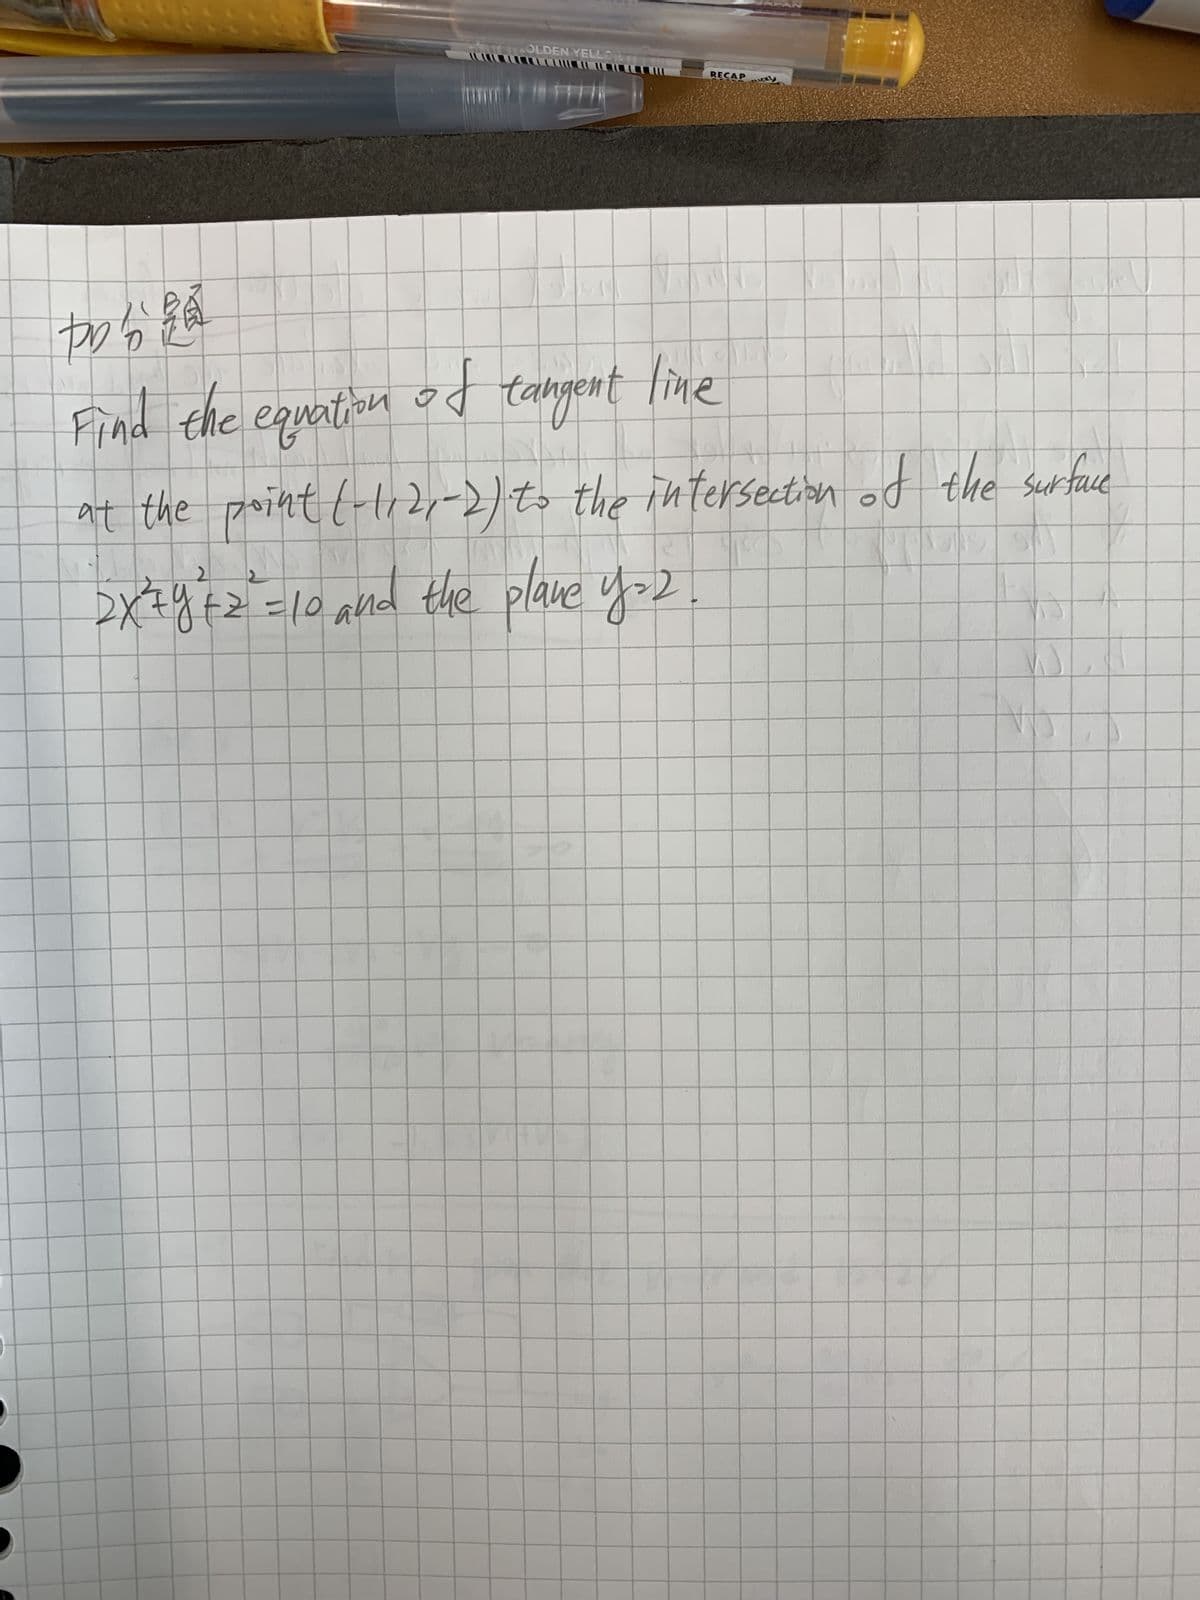 OLDEN YELL
RECAP
加分題
Find the equation of tangent line
at the point (-1,2,-2) to the intersection of the surface
2x²+y²+z²=10 and the plane y=2.